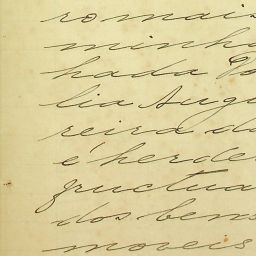 romais
minha
hada
lia Augu
reira da
é herdei
fructua
dos bens
moveis